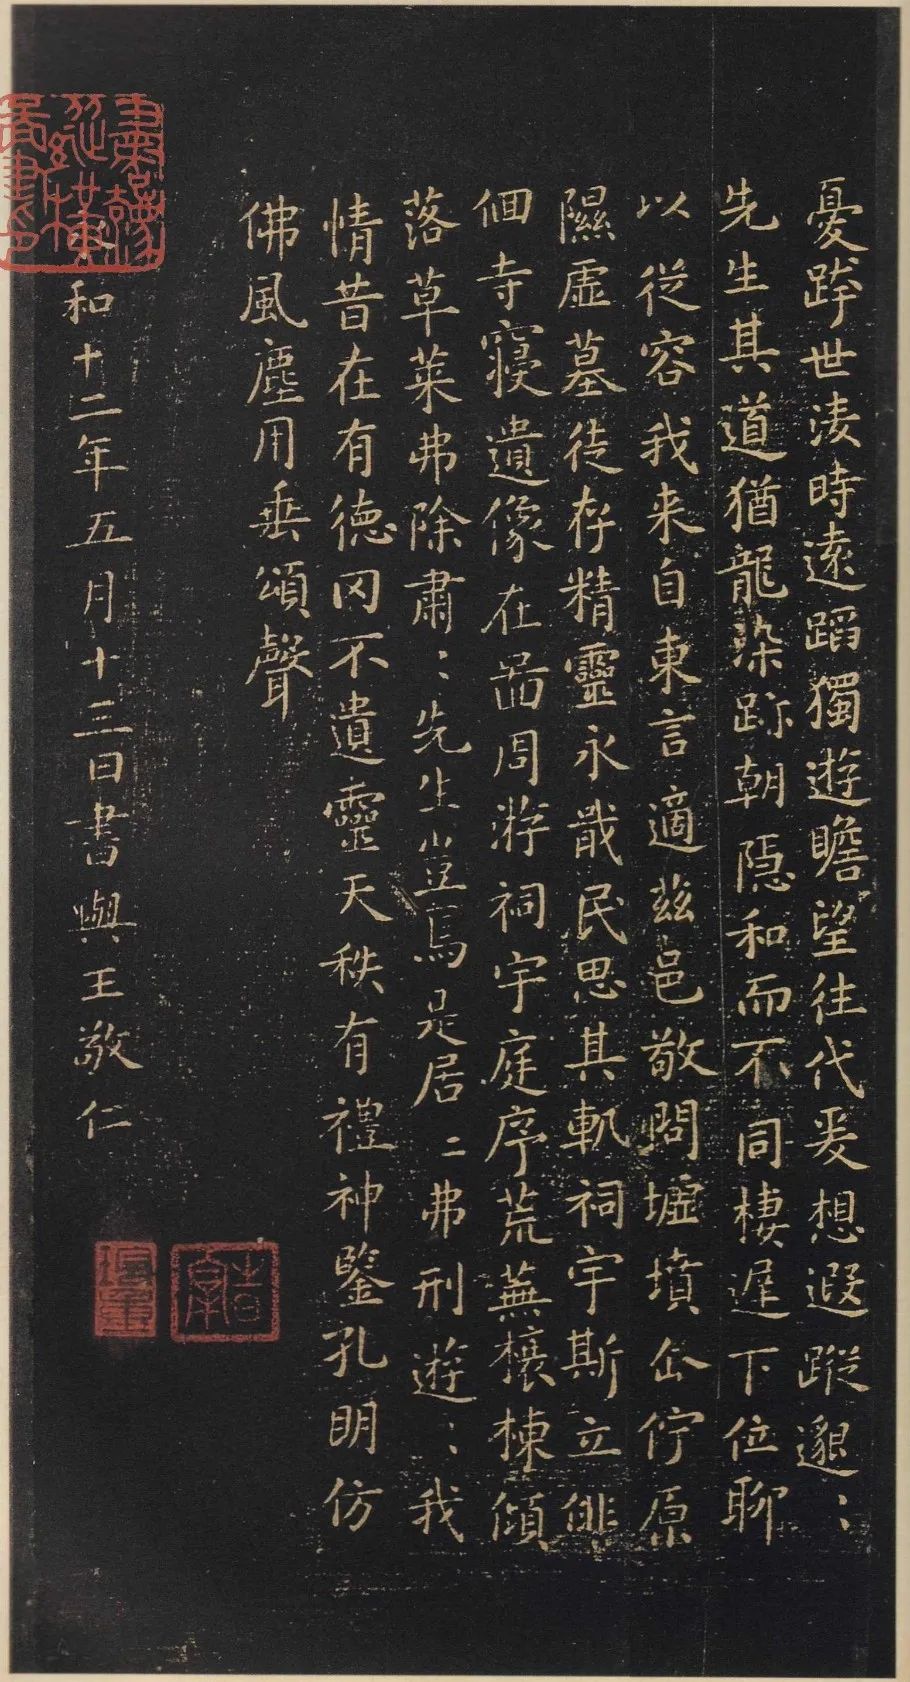 憂跨世淩時遠蹈獨遊瞻望往代爰想遐蹤邈〻
先生其道猶龍染跡朝隱和而不同棲遲下位聊
以從容我来自東言適茲邑敬問墟墳企佇原
隰虛墓徒存精靈永戢民思其軌祠宇斯立徘
佪寺寢遺像在啚周游祠宇庭序荒蕪榱棟傾
落草莱弗除肅〻先生豈焉是居〻弗刑遊〻我
情昔在有德罔不遺靈天秩有禮神鑒孔明仿
佛風塵用垂頌聲
永和十二年五月十三日書與王敬仁